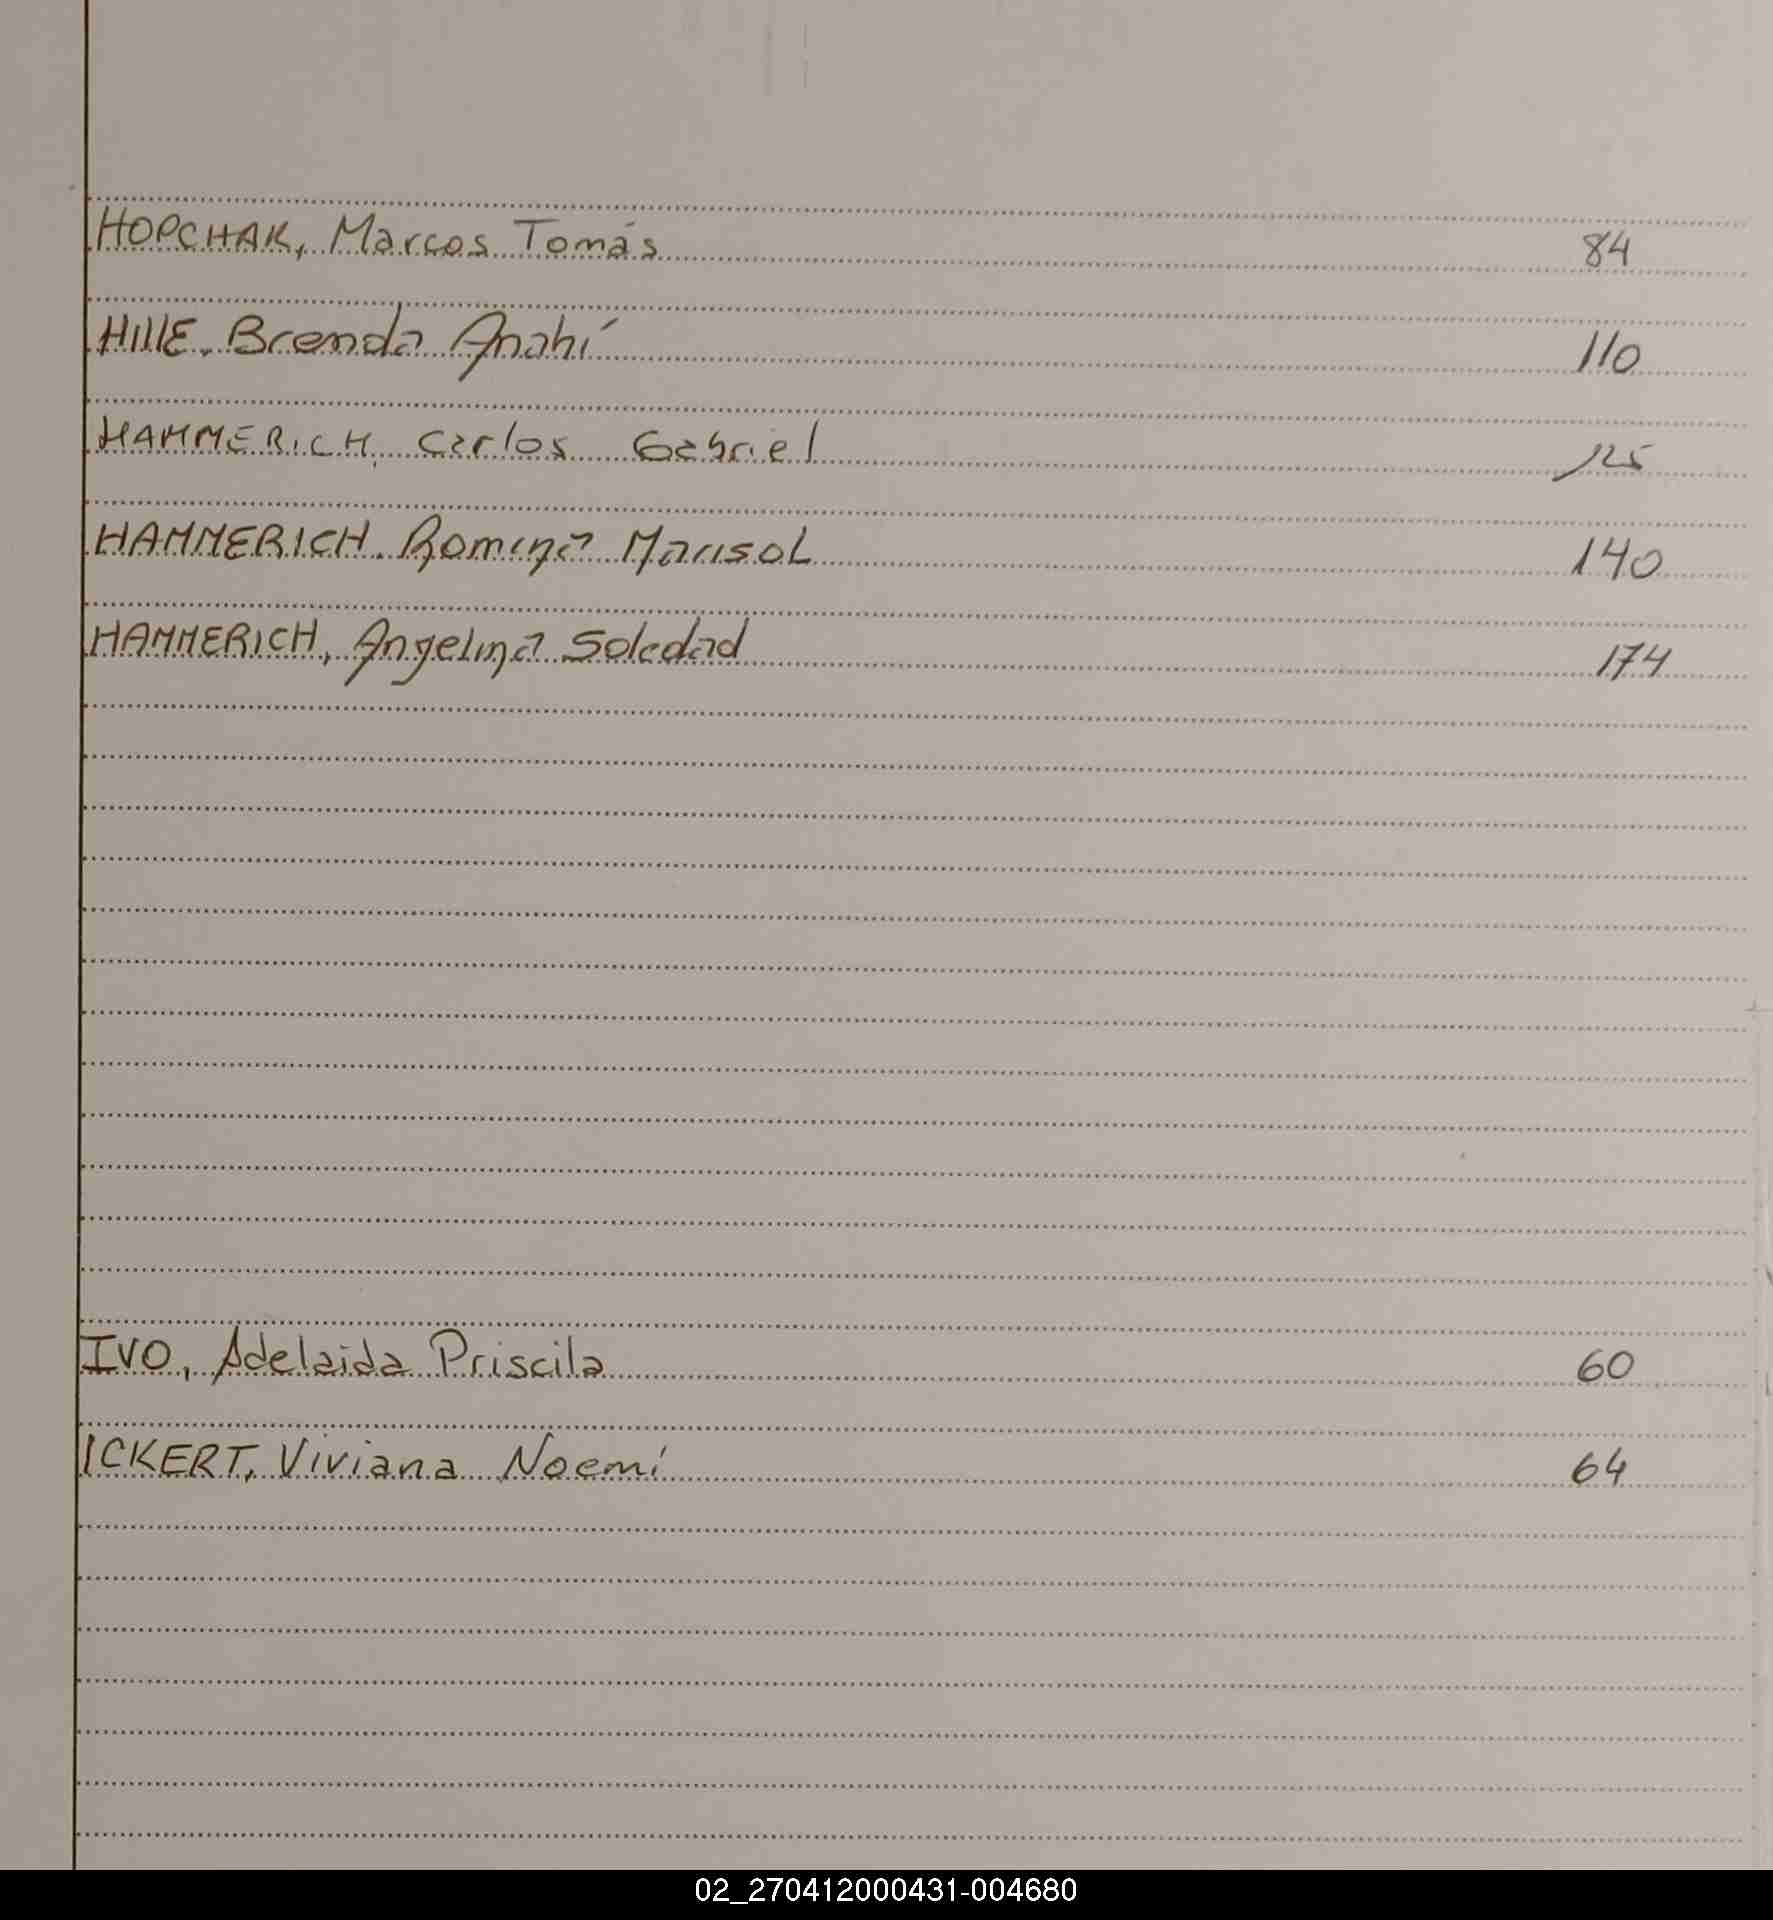 HOPCHAK, Marcos Tomás 84
HILLE, Brenda Anahí 110
HAMMERICH, Carlos Gabriel 125
HAMMERICH, Romina Marisol 140
HAMMERICH, Angelina Soledad 174
IVO, Adelaida Priscila 60
ICKERT, Viviana Noemí 64
02_270412000431-004680